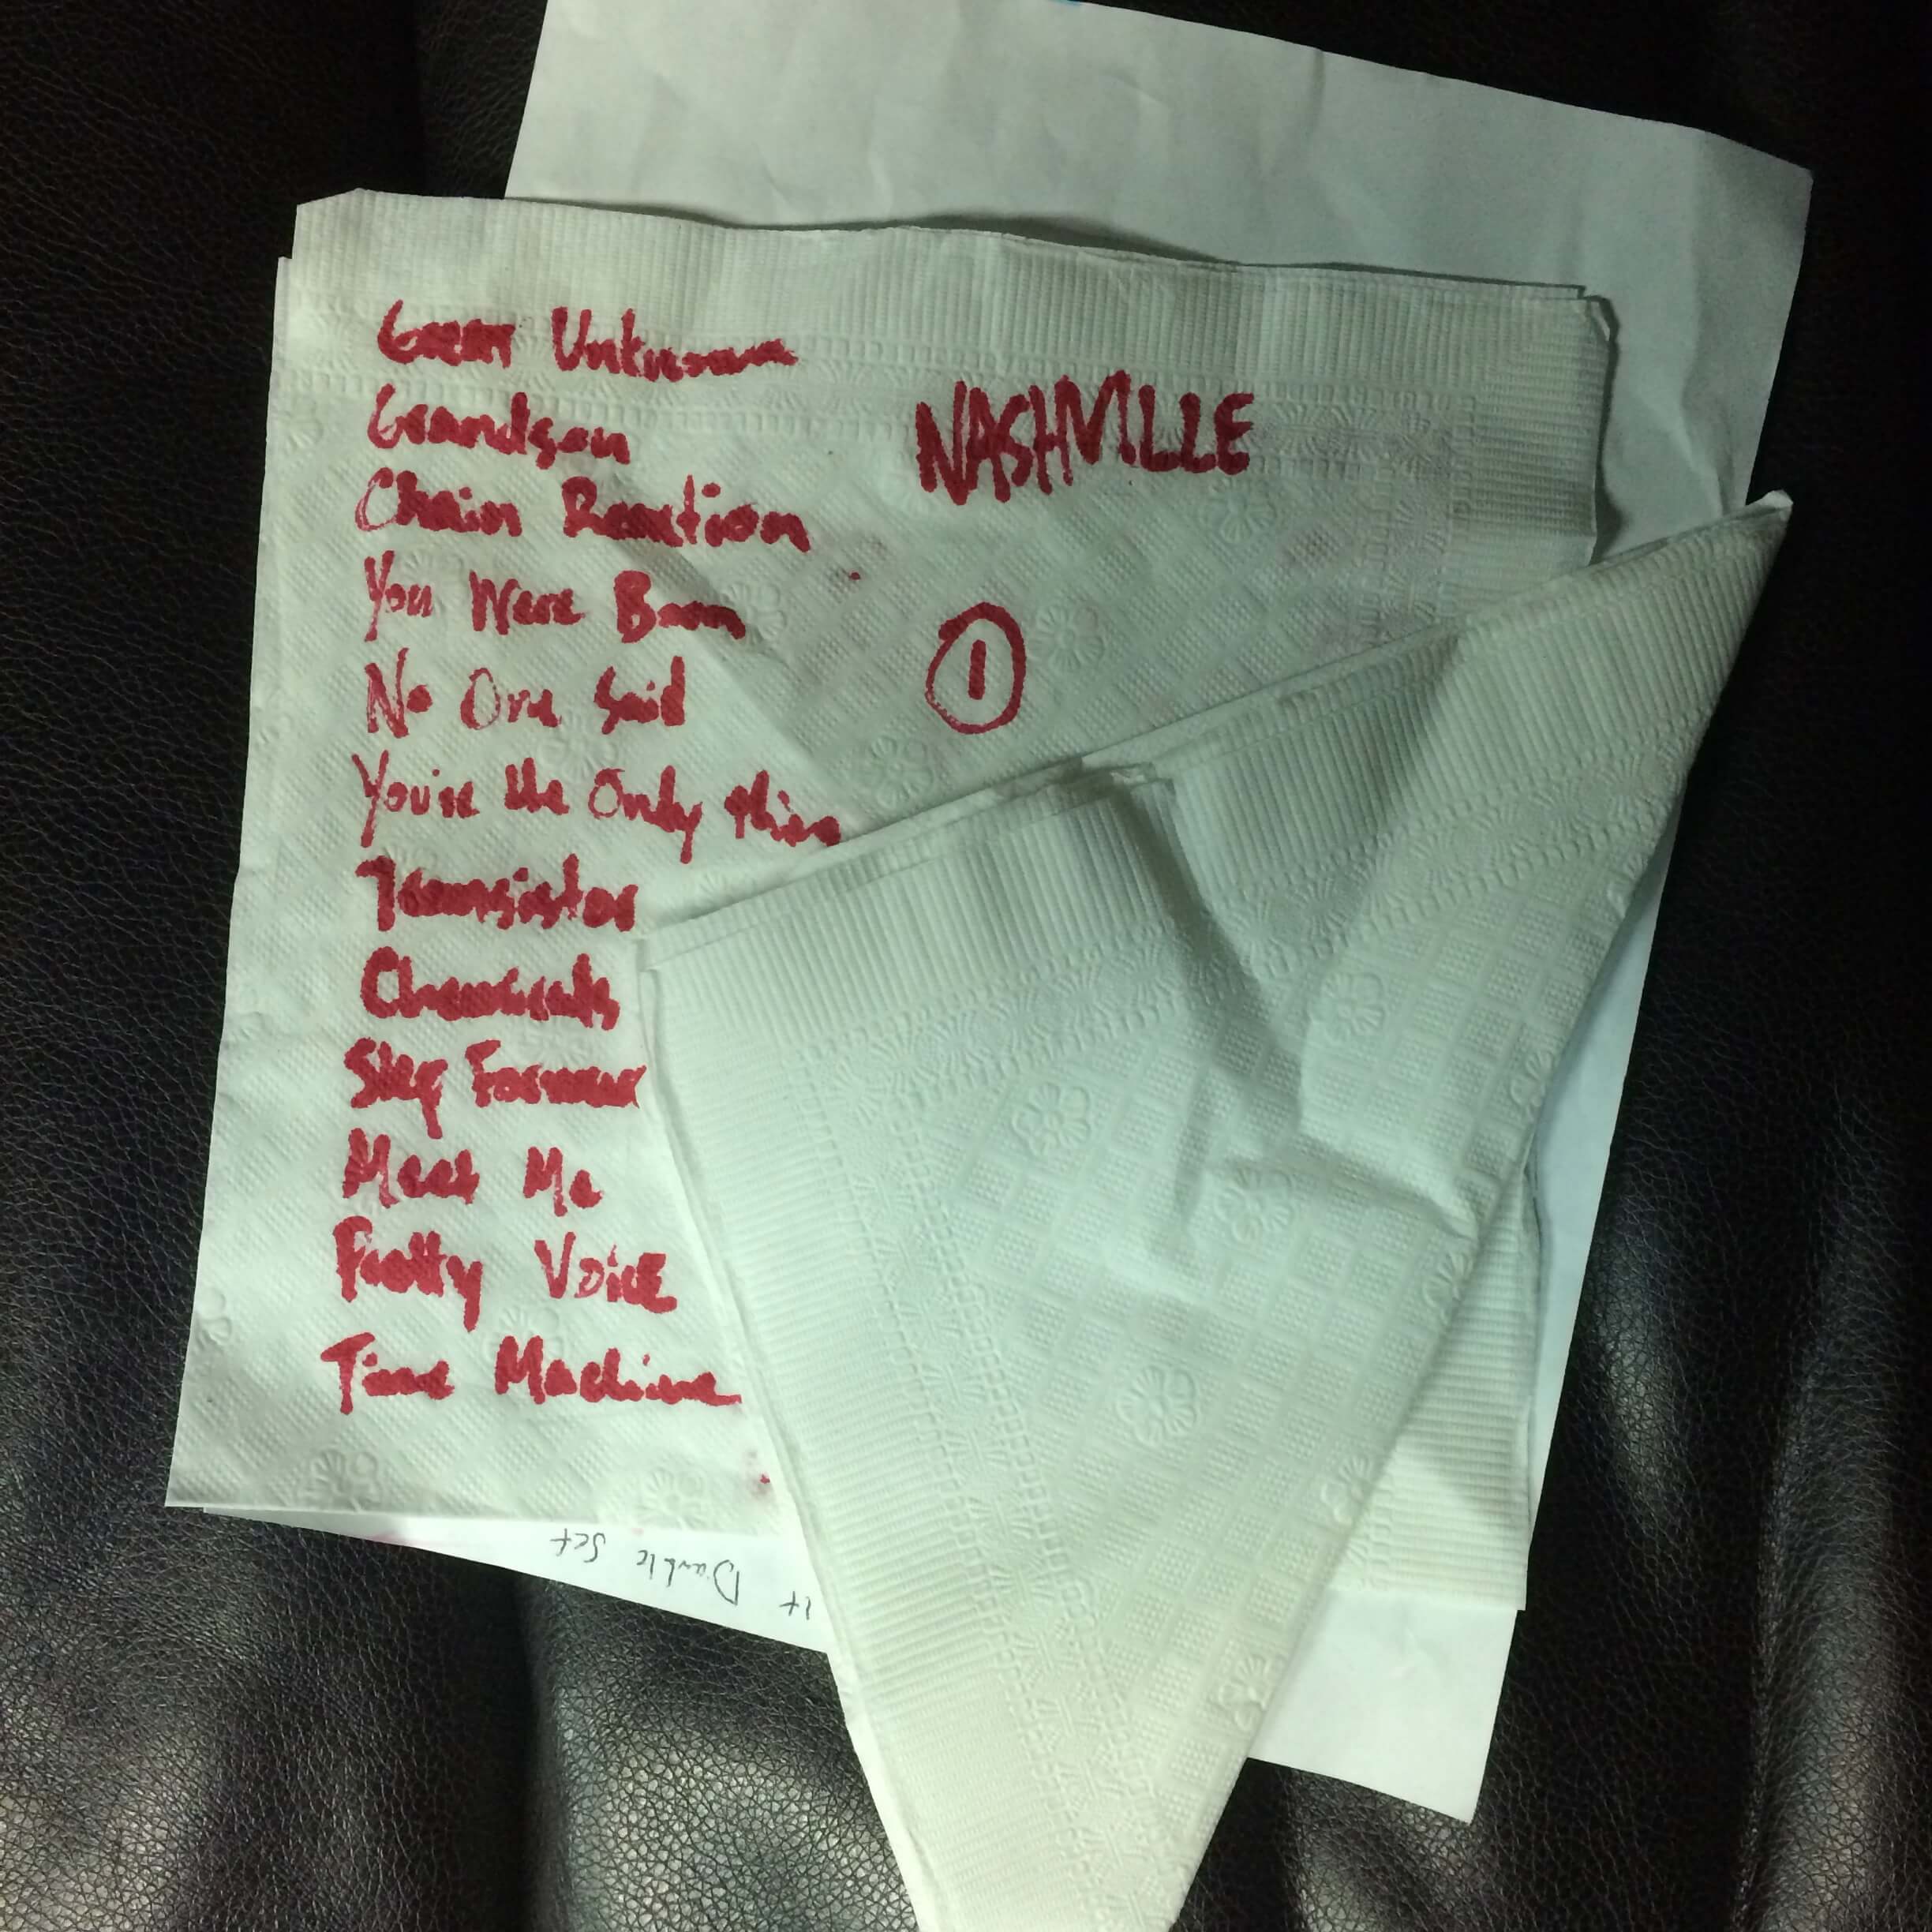 Great Unknown
Grandson
Chain Reaction
You Were Born
No One Said
You're the Only thing
Transistor
Chemicals
Sky Farmer
Meet Me
Pretty Voice
Time Machine
NASHVILLE
1
Double Set